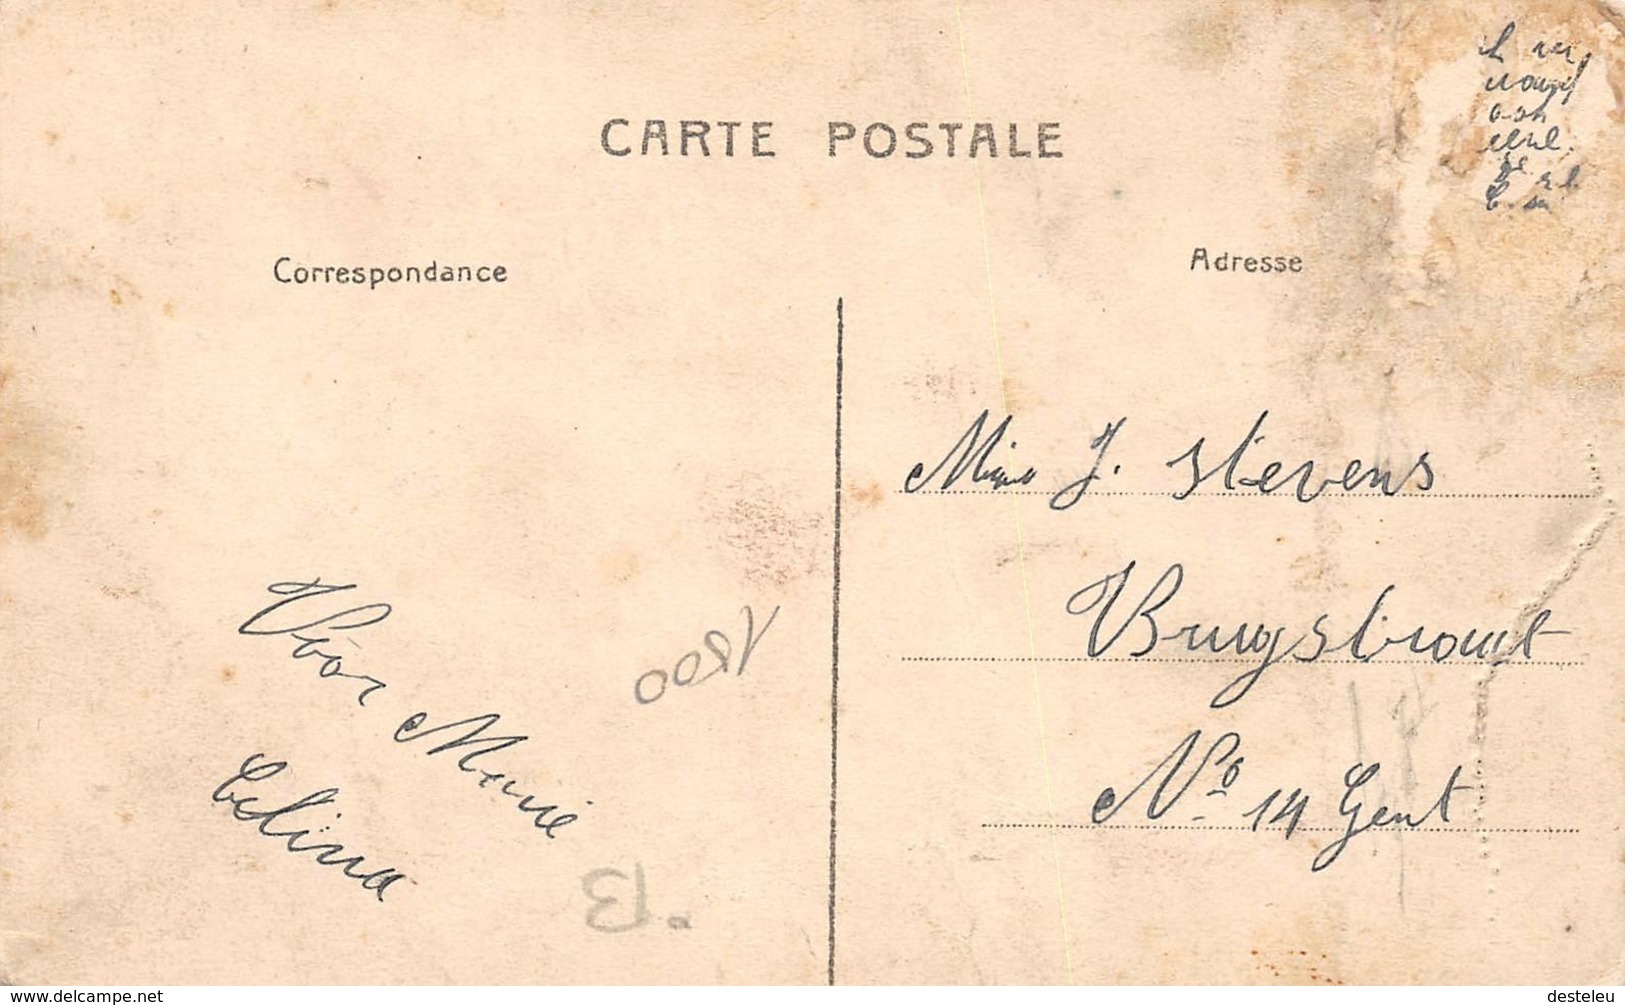 CARTE POSTALE
Correspondance
Adresse
J. Stevens
Brugstraat
No 14 Gent
Voor Marie
Celina
1800
B.
www.delcampe.net
desteleu